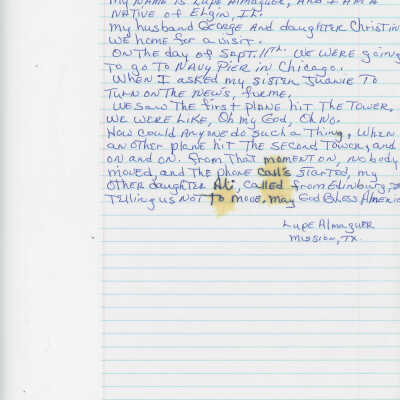 My name is Lupe Almaguer, and I am a
native of Elgin, Il.
my husband George and daughter Christin
we home for a visit.
On the day of Sept. 11th. we were going
to go to Navy Pier in Chicago.
When I asked my sister Juanie to
turn on the news, for me.
We saw the first plane hit the tower,
we were like, Oh my God, Oh No.
How could anyone do such a thing, when
an other plane hit the second tower, and
on and on. From that moment on, nobody
moved, and the phone call's started, my
other daughter Ali, called from Edinburg,
telling us not to move. may God Bless Americ
Lupe Almaguer
Mission, TX